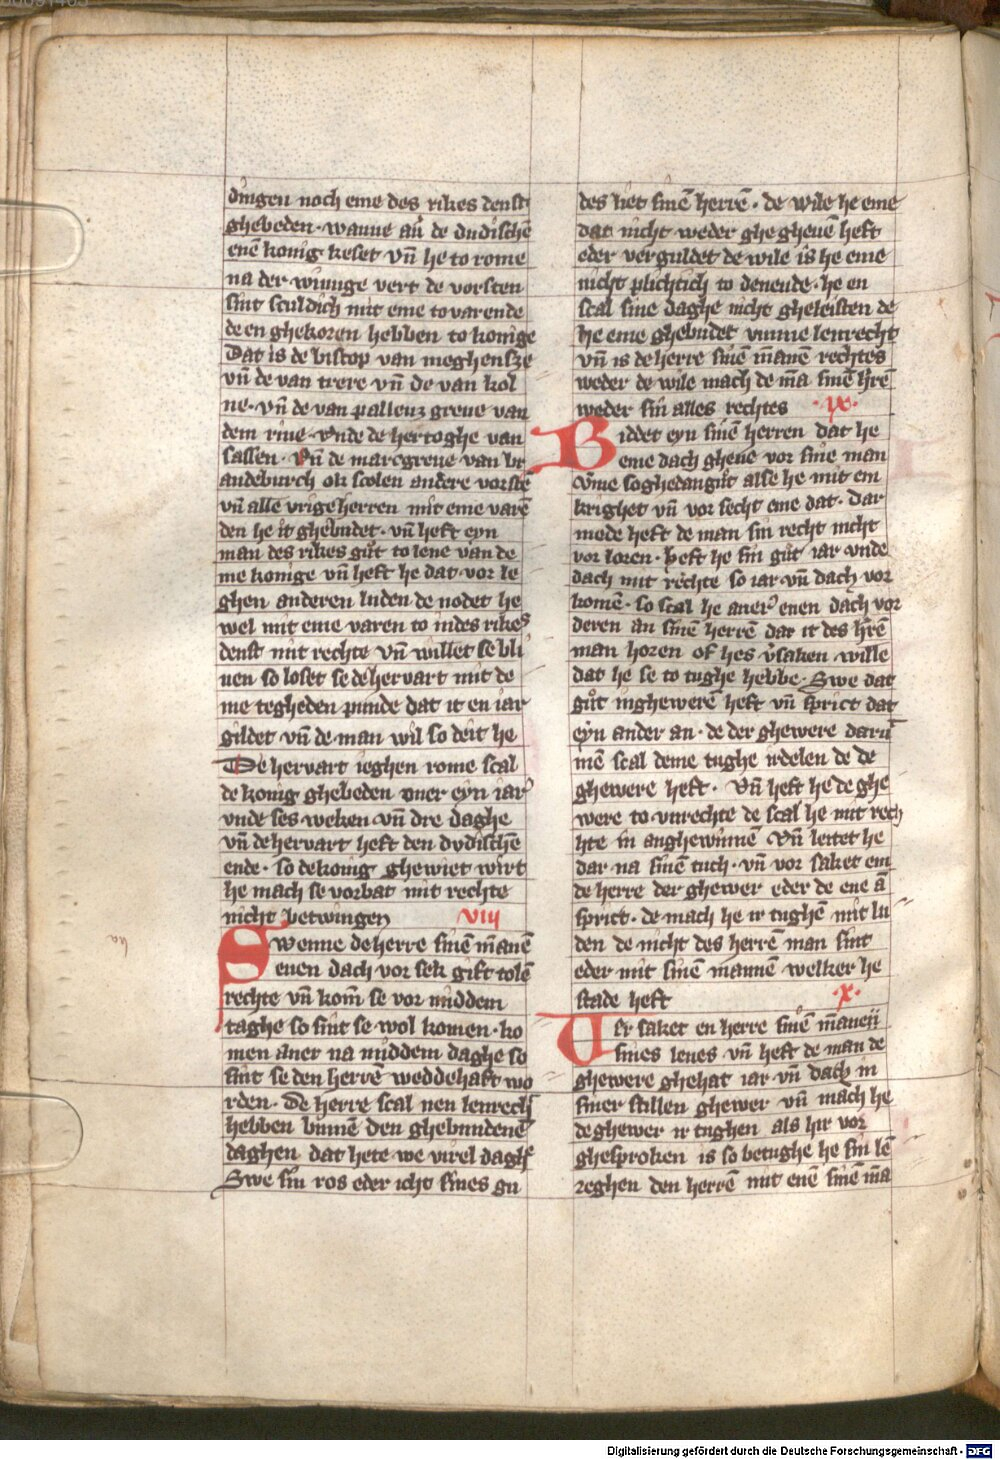 dingen noch eme des rikes denst
ghebeden · wanne au̅ de dudisch̅e
ene̅ konig keset vn̅ he to rome
na der wiinge vert de vorsten
sint sculdich mit eme to varende
de en ghekoren hebben to konige
Dat is de biscop van meghensze
vn̅ de van trere vn̅ de van kol
ne · vn̅ de van pallenz greue van
dem rine · vnde de hertoghe van
sassen · Vn̅ de marcgreue van br
andeburch ok scolen andere vorste̅
vn̅ alle vrige herren mit eme vare̅
den he it ghebudet · vn̅ heft eyn
man des rikes gůt to lene van de
me konige vn̅ heft he dat vor le
ghen anderen luden de nodet he
wel mit eme varen to indes rikes
denst mit rechte vn̅ willet se bli
uen so loset se de hervart mit de
me tegheden punde dat it en iar
gildet vn̅ de man wil so deit he
De hervart ieghen rome scal
de konig ghebeden ouer eyn iar
vnde ses weken vn̅ dre daghe
vn̅ de hervart heft den dvdische̅
ende · so de konig ghewiet wirt
he mach se vorbat mit rechte
nicht betwingen viii
Swenne de herre sine̅ m̅ane̅
enen dach vor sek gift to le̅
rechte vn̅ kom̅ se vor middem
taghe so sint se wol komen · ko
men auer na middem daghe so
sint se den herre̅ weddehaft wo
rden · De herre scal nen lenrech
hebben binne̅ den ghebundene̅
daghen dat hete we virel dagh̅e
Swe sin ros eder icht sines gu
des liet sine̅ herre̅ · de wile he eme
dat nicht weder ghe gheue̅ heft
eder verguldet de wile is he eme
nicht plichtich to denende · he en
scal sine daghe nicht gheleisten de
he eme ghebudet vmme lenrecht
vn̅ is de herre sine̅ m̅ane̅ rechtes
weder de wile mach de m̅a sine̅ h̅re̅
weder sin alles rechtes · ix ·
Biddet eyn sine̅ herren dat he
eme dach gheue vor sine man
vm̅e soghedan gůt alse he mit em
krighet vn̅ vor secht eme dat · Dar
mede heft de man sin recht nicht
vor loren · heft he sin gůt iar vnde
dach mit rechte so iar vn̅ dach vor
kome̅ · so scal he auer enen dach vor
deren an sine̅ herre̅ dar it des h̅re̅
man horen of hes v̅saken wille
dat he se to tughe hebbe · Swe dat
gůt in ghewere̅ heft vn̅ sprict dat
eyn ander an · de der ghewere daru̅
me̅ scal deme tughe irdelen de de
ghewere heft · Vn̅ heft he de ghe
were to vnrechte de scal he mit rech
hte in anghewinne̅ Vn̅ leitet he
dar na sine̅ tuch · vn̅ vor saket em
de herre der ghewer eder de ene a̅
sprict · de mach he ir tughe̅ mit lu
den de nicht des herre̅ man sint
eder mit sine̅ manne̅ welker he
stade heft · x ·
Vor saket en herre sine̅ m̅anen
sines lenes vn̅ heft de man de
ghewere ghehat iar vn̅ dach in
siner stillen ghewer vn̅ mach he
de ghewer ir tughen als hir vor
ghesproken is so betughe he sin le̅
reghen den herre̅ mit ene̅ sine̅ m̅a
Digitalisierung gefördert durch die Deutsche Forschungsgemeinschaft - DFG